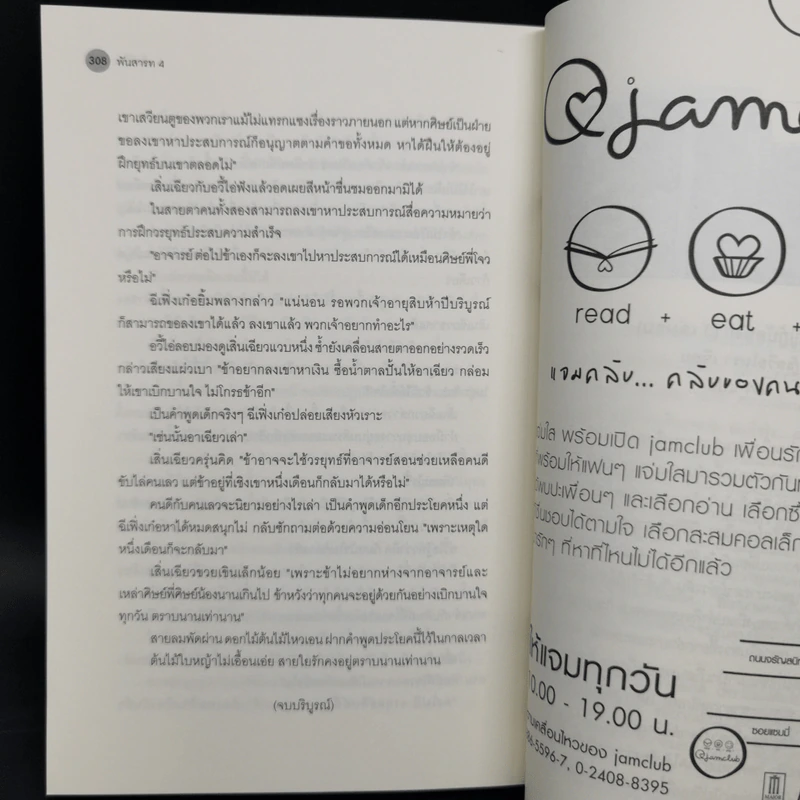 308 พันสารท 4
เขาเสวียนตูของพวกเราแม้ไม่แทรกแซงเรื่องราวภายนอก แต่หากศิษย์เป็นฝ่าย
ขอลงเขาหาประสบการณ์ก็อนุญาตตามคำขอทั้งหมด หาได้ฝืนให้ต้องอยู่
ฝึกยุทธ์บนเขาตลอดไม่"
เสิ่นเฉียวกับอวี้ไอ่ฟังแล้วอดเผยสีหน้าชื่นชมออกมามิได้
ในสายตาคนทั้งสองสามารถลงเขาหาประสบการณ์สื่อความหมายว่า
การฝึกวรยุทธ์ประสบความสำเร็จ
"อาจารย์ ต่อไปข้าเองก็จะลงเขาไปหาประสบการณ์ได้เหมือนศิษย์พี่โจว
หรือไม่"
ฉีเฟิ่งเก๋อยิ้มพลางกล่าว "แน่นอน รอพวกเจ้าอายุสิบห้าปีบริบูรณ์
ก็สามารถขอลงเขาได้แล้ว ลงเขาแล้ว พวกเจ้าอยากทำอะไร"
อวี้ไอ่ลอบมองดูเสิ่นเฉียวแวบหนึ่ง ซ้ำยังเคลื่อนสายตาออกอย่างรวดเร็ว
กล่าวเสียงแผ่วเบา "ข้าอยากลงเขาหาเงิน ซื้อน้ำตาลปั้นให้อาเฉียว กล่อม
ให้เขาเบิกบานใจ ไม่โกรธข้าอีก"
เป็นคำพูดเด็กจริงๆ ฉีเฟิ่งเก๋อปล่อยเสียงหัวเราะ
"เช่นนั้นอาเฉียวเล่า"
เสิ่นเฉียวครุ่นคิด "ข้าอาจจะใช้วรยุทธ์ที่อาจารย์สอนช่วยเหลือคนดี
ขับไล่คนเลว แต่ข้าอยู่ที่เชิงเขาหนึ่งเดือนก็กลับมาได้หรือไม่"
คนดีกับคนเลวจะนิยามอย่างไรเล่า เป็นคำพูดเด็กอีกประโยคหนึ่ง แต่
ฉีเฟิ่งเก๋อหาได้หมดสนุกไม่ กลับซักถามต่อด้วยความอ่อนโยน "เพราะเหตุใด
หนึ่งเดือนก็จะกลับมา"
เสิ่นเฉียวขวยเขินเล็กน้อย "เพราะข้าไม่อยากห่างจากอาจารย์และ
เหล่าศิษย์พี่ศิษย์น้องนานเกินไป ข้าหวังว่าทุกคนจะอยู่ด้วยกันอย่างเบิกบานใจ
ทุกวัน ตราบนานเท่านาน"
สายลมพัดผ่าน ดอกไม้ต้นไม้ไหวเอน ฝากคำพูดประโยคนี้ไว้ในกาลเวลา
ต้นไม้ใบหญ้าไม่เอื้อนเอ่ย สายใยรักคงอยู่ตราบนานเท่านาน
(จบบริบูรณ์)
@jam
read + eat +
แจมคลับ... คลับของคน
พร้อมเปิด jamclub เพื่อนรัก
พร้อมให้แฟนๆ แจ่มใสมารวมตัวกัน
พบปะเพื่อนๆ และเลือกอ่าน เลือกซื้อ
ชื่นชอบได้ตามใจ เลือกสะสมคอลเล็ก
รักๆ ที่หาที่ไหนไม่ได้อีกแล้ว
ให้แจมทุกวัน
0.00 - 19.00 น.
ความเคลื่อนไหวของ jamclub
5596-7, 0-2408-8395
@jamclub
ถนนจรัญสนิท
ซอยแซมมี่